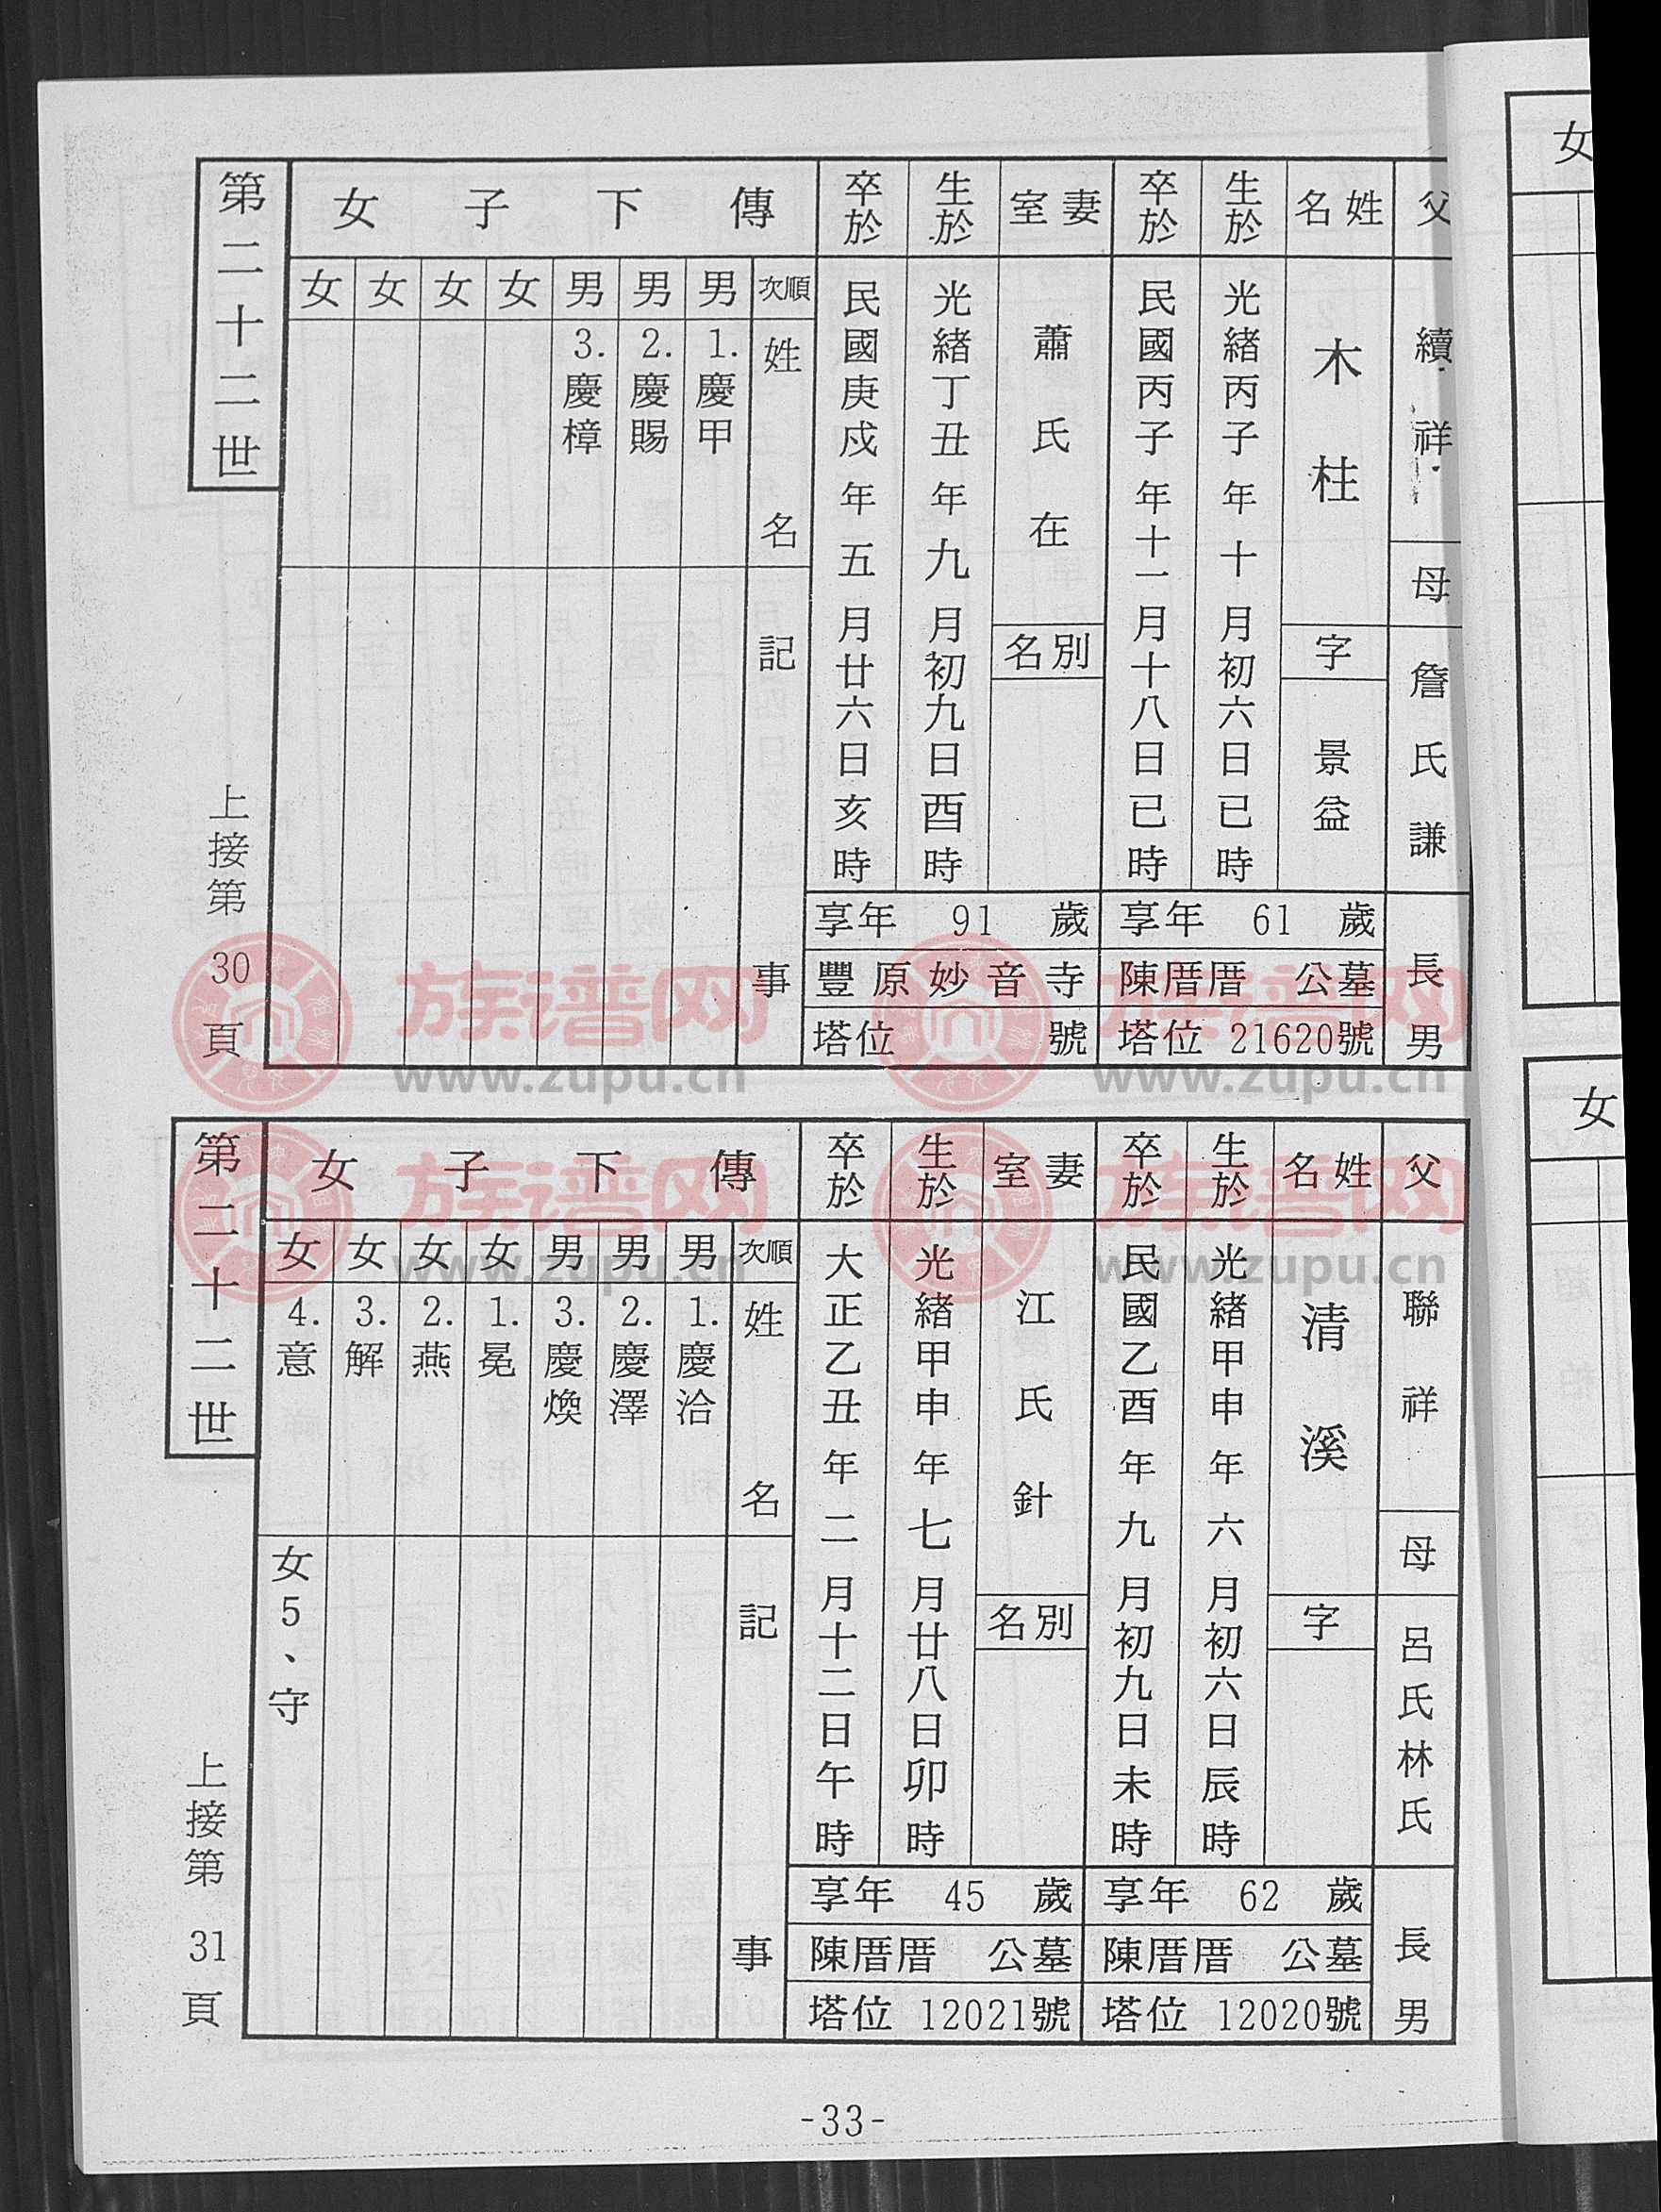 父 續祥 母 詹氏謙 長男
姓名 木柱 字 景益
生於 光緒丙子年十月初六日已時
卒於 民國丙子年十一月十八日已時
享年 61 歲
陳厝厝 公墓
塔位 21620號
妻室 蕭氏在 別名
生於 光緒丁丑年九月初九日酉時
卒於 民國庚戍年五月廿六日亥時
享年 91 歲
豐原妙音寺
塔位 號
傳下子女
順次 姓名 記事
男 1.慶甲
男 2.慶賜
男 3.慶樟
女
女
女
女
第二十二世
上接第 30 頁
父 聯祥 母 呂氏林氏 長男
姓名 清溪 字
生於 光緒甲申年六月初六日辰時
卒於 民國乙酉年九月初九日未時
享年 62 歲
陳厝厝 公墓
塔位 12020號
妻室 江氏針 別名
生於 光緒甲申年七月廿八日卯時
卒於 大正乙丑年二月十二日午時
享年 45 歲
陳厝厝 公墓
塔位 12021號
傳下子女
順次 姓名 記事
男 1.慶洽
男 2.慶澤
男 3.慶煥
女 1.冕
女 2.燕
女 3.解
女 4.意 女5、守
第二十二世
上接第 31 頁
-33-
女
女
族谱网
www.zupu.cn
族谱网
www.zupu.cn
族谱网
www.zupu.cn
族谱网
www.zupu.cn